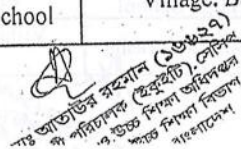 chool
Village: B
আতাউর রহমান (১৬৬২৭)
পরিচালক (ইকুইটি), সেসিপ
উচ্চ শিক্ষা অধিদপ্তর
শিক্ষা বিভাগ
বাংলাদেশ।